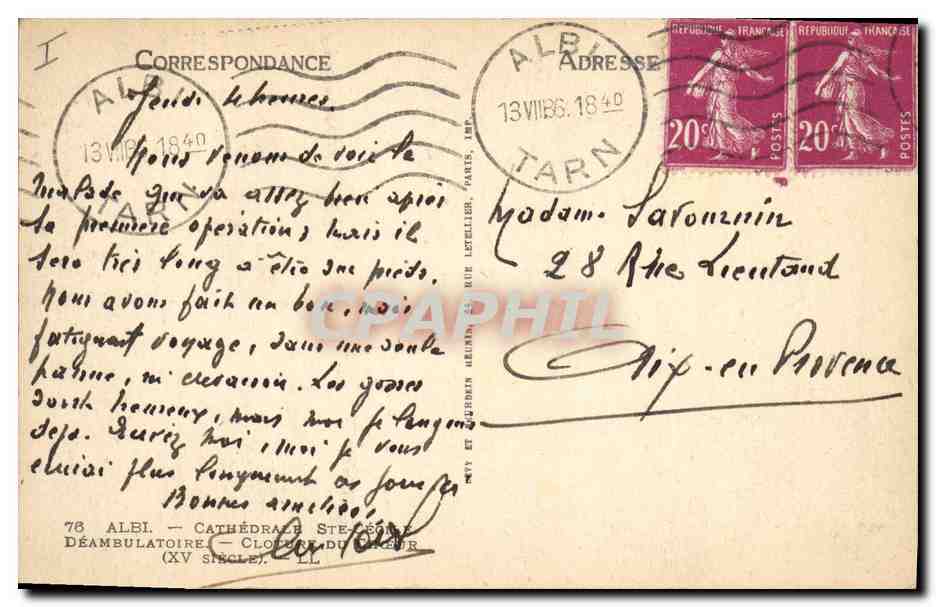 I
CORRESPONDANCE
ADRESSE
ALBI
13 VII 36. 18 40
TARN
ALBI
13 VII 36. 18 40
TARN
RÉPUBLIQUE FRANÇAISE
20c
POSTES
RÉPUBLIQUE FRANÇAISE
20c
POSTES
Jeudi 4 heures
Nous venons de voir le
malade qui va assez bien après
sa première opération, mais il
sera très long à être sur pieds.
Nous avons fait un bon, mais
fatigant voyage, sans une seule
panne, ni crevaison. Les gosses
sont heureux, mais moi je languis
déjà. Ecrivez moi, moi je vous
écrirai plus longuement ces jours
Bonnes amitiés,
76 ALBI. — CATHÉDRALE STE-CÉCILE
DÉAMBULATOIRE. — CLOTURE DU CHŒUR
(XV SIÈCLE). — LL
LÉVY ET NEURDEIN RÉUNIS, RUE LETELLIER, PARIS, IMP.
Madame Savournin
28 Rue Lieutaud
Aix-en Provence
CPAPHIL